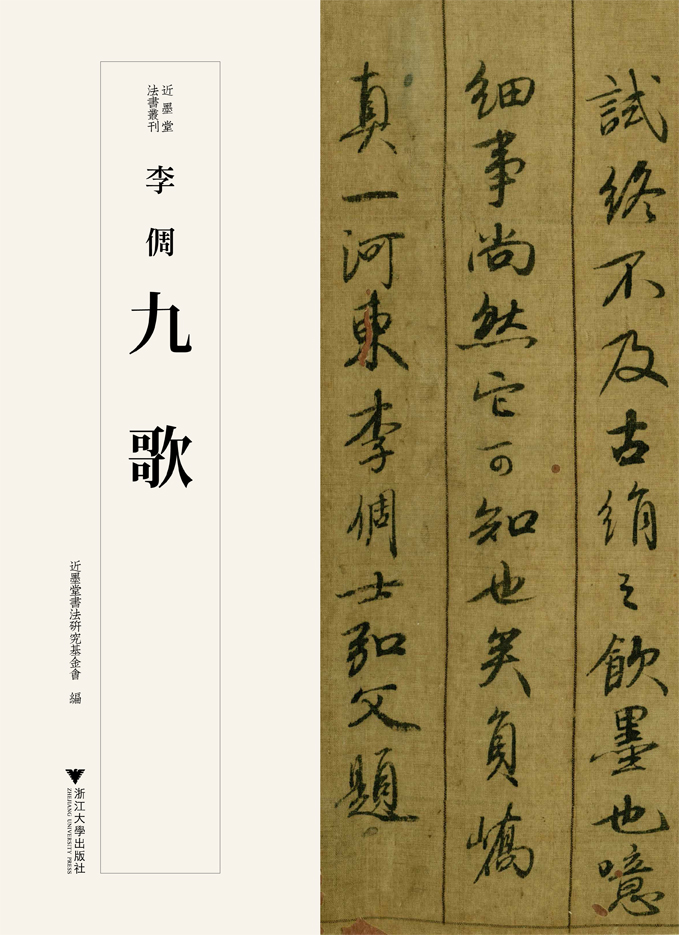 近墨堂
法書叢刊
李倜
九歌
近墨堂書法研究基金會 編
浙江大學出版社
ZHEJIANG UNIVERSITY PRESS
試終不及古絹之飲墨也噫
細事尚然它可知也矣員嶠
真一河東李倜士弘父題